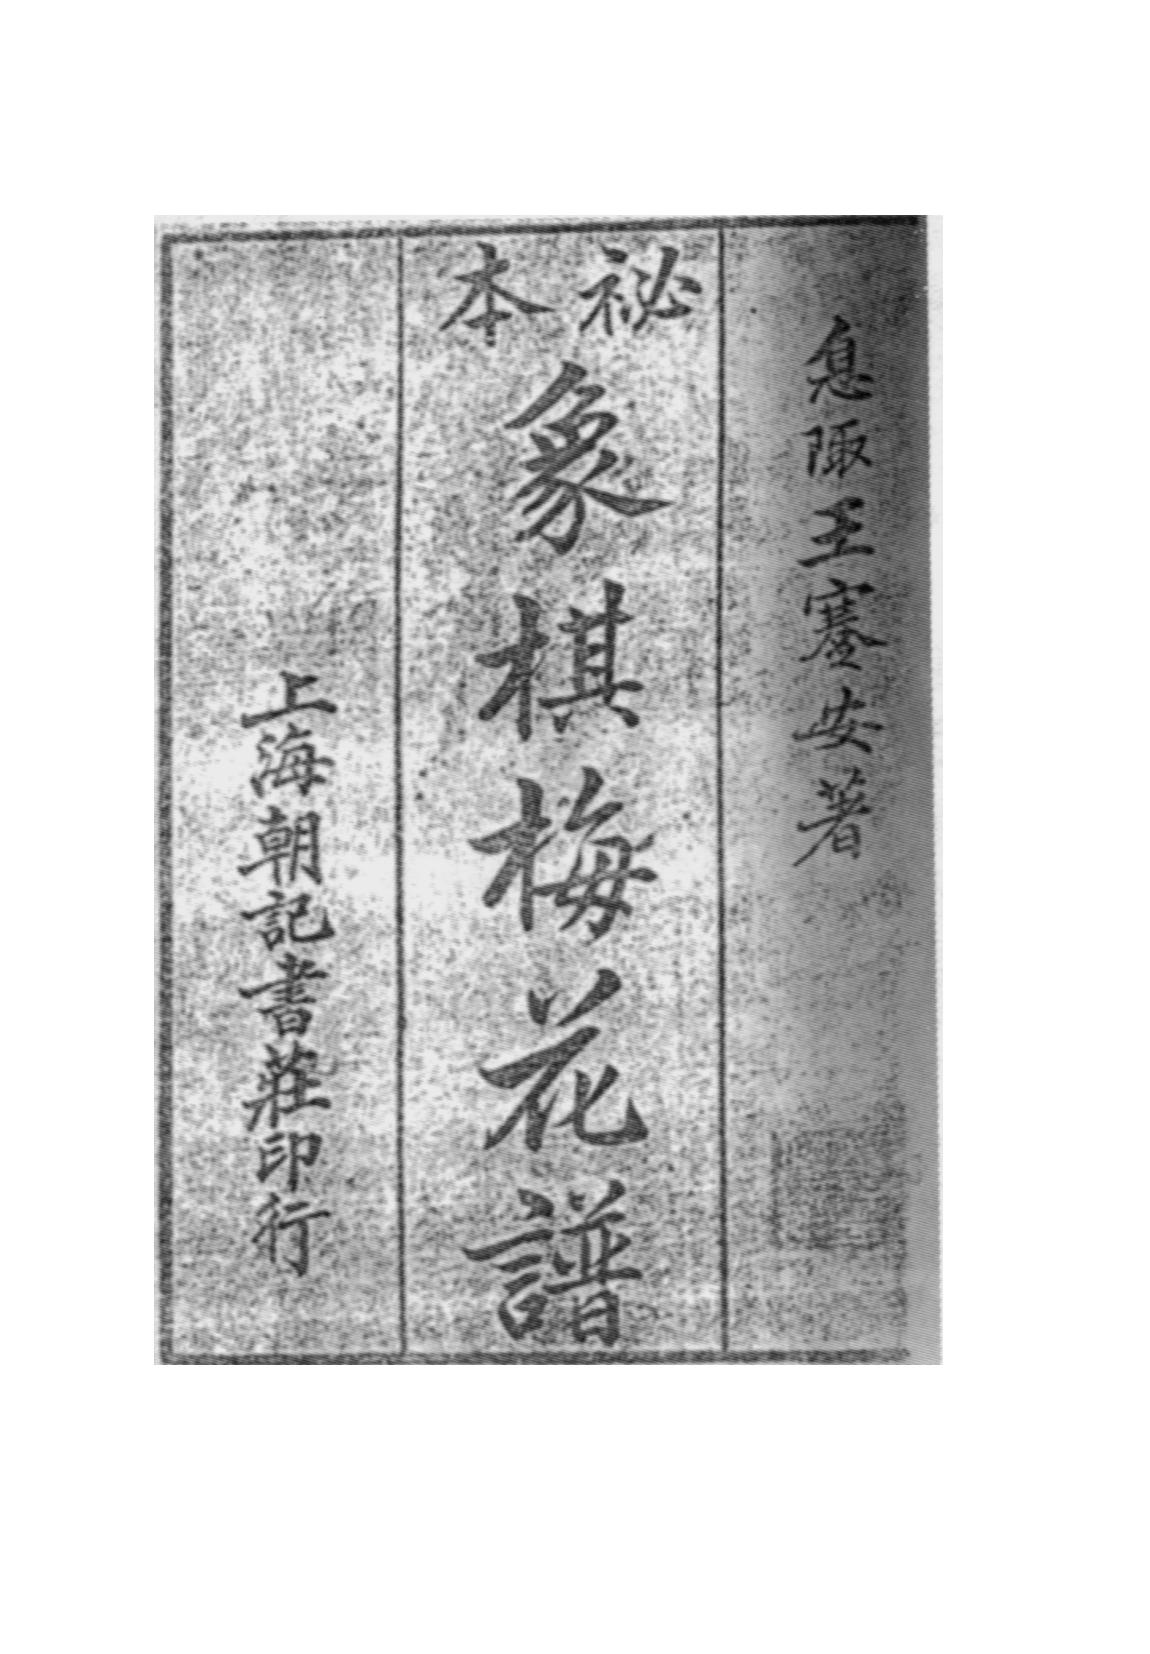 息陬王蹇安著
祕本
象棋梅花譜
上海朝記書莊印行